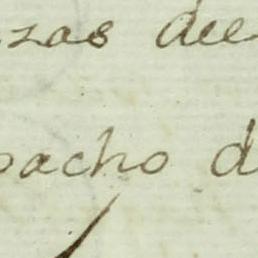 zas del
pacho d